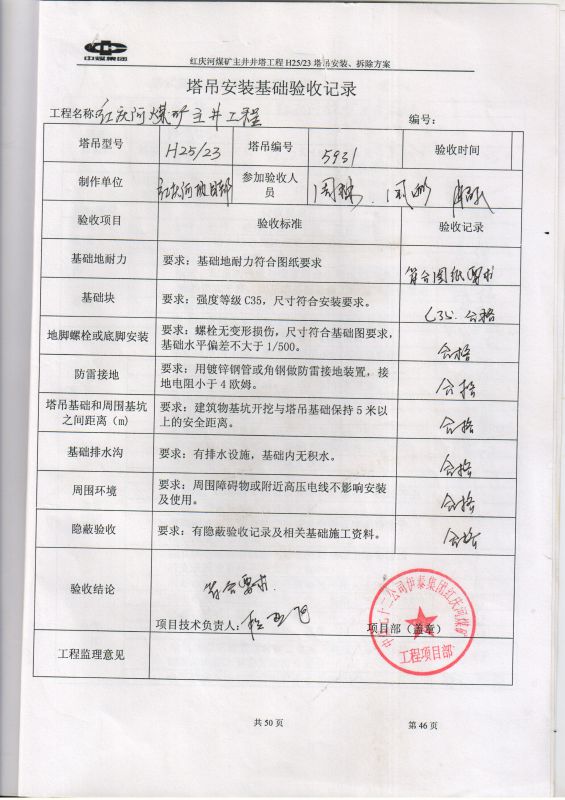 中煤集团
红庆河煤矿主井井塔工程 H25/23 塔吊安装、拆除方案
塔吊安装基础验收记录
工程名称：红庆河煤矿主井工程 编号：
塔吊型号 H25/23 塔吊编号 5931 验收时间
制作单位 红庆河项目部 参加验收人员
验收项目 验收标准 验收记录
基础地耐力 要求：基础地耐力符合图纸要求 符合图纸要求
基础块 要求：强度等级 C35，尺寸符合安装要求。 C35. 合格
地脚螺栓或底脚安装 要求：螺栓无变形损伤，尺寸符合基础图要求，
基础水平偏差不大于 1/500。 合格
防雷接地 要求：用镀锌钢管或角钢做防雷接地装置，接
地电阻小于 4 欧姆。 合格
塔吊基础和周围基坑
之间距离（m） 要求：建筑物基坑开挖与塔吊基础保持 5 米以
上的安全距离。 合格
基础排水沟 要求：有排水设施，基础内无积水。 合格
周围环境 要求：周围障碍物或附近高压电线不影响安装
及使用。 合格
隐蔽验收 要求：有隐蔽验收记录及相关基础施工资料。 合格
验收结论 符合要求.
项目技术负责人： 项目部（盖章）
工程项目部
工程监理意见
共 50 页 第 46 页